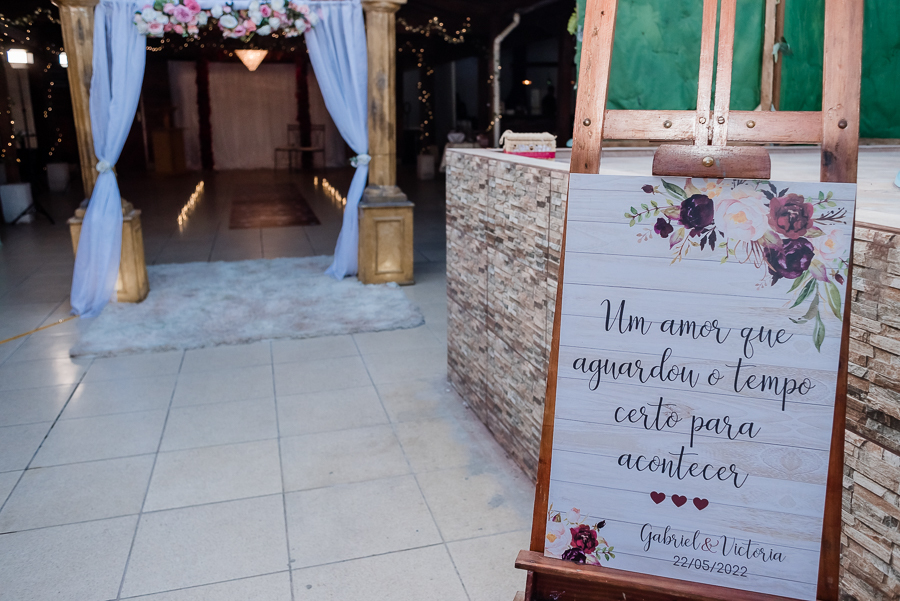 Um amor que
aguardou o tempo
certo para
acontecer
Gabriel & Victoria
22/05/2022